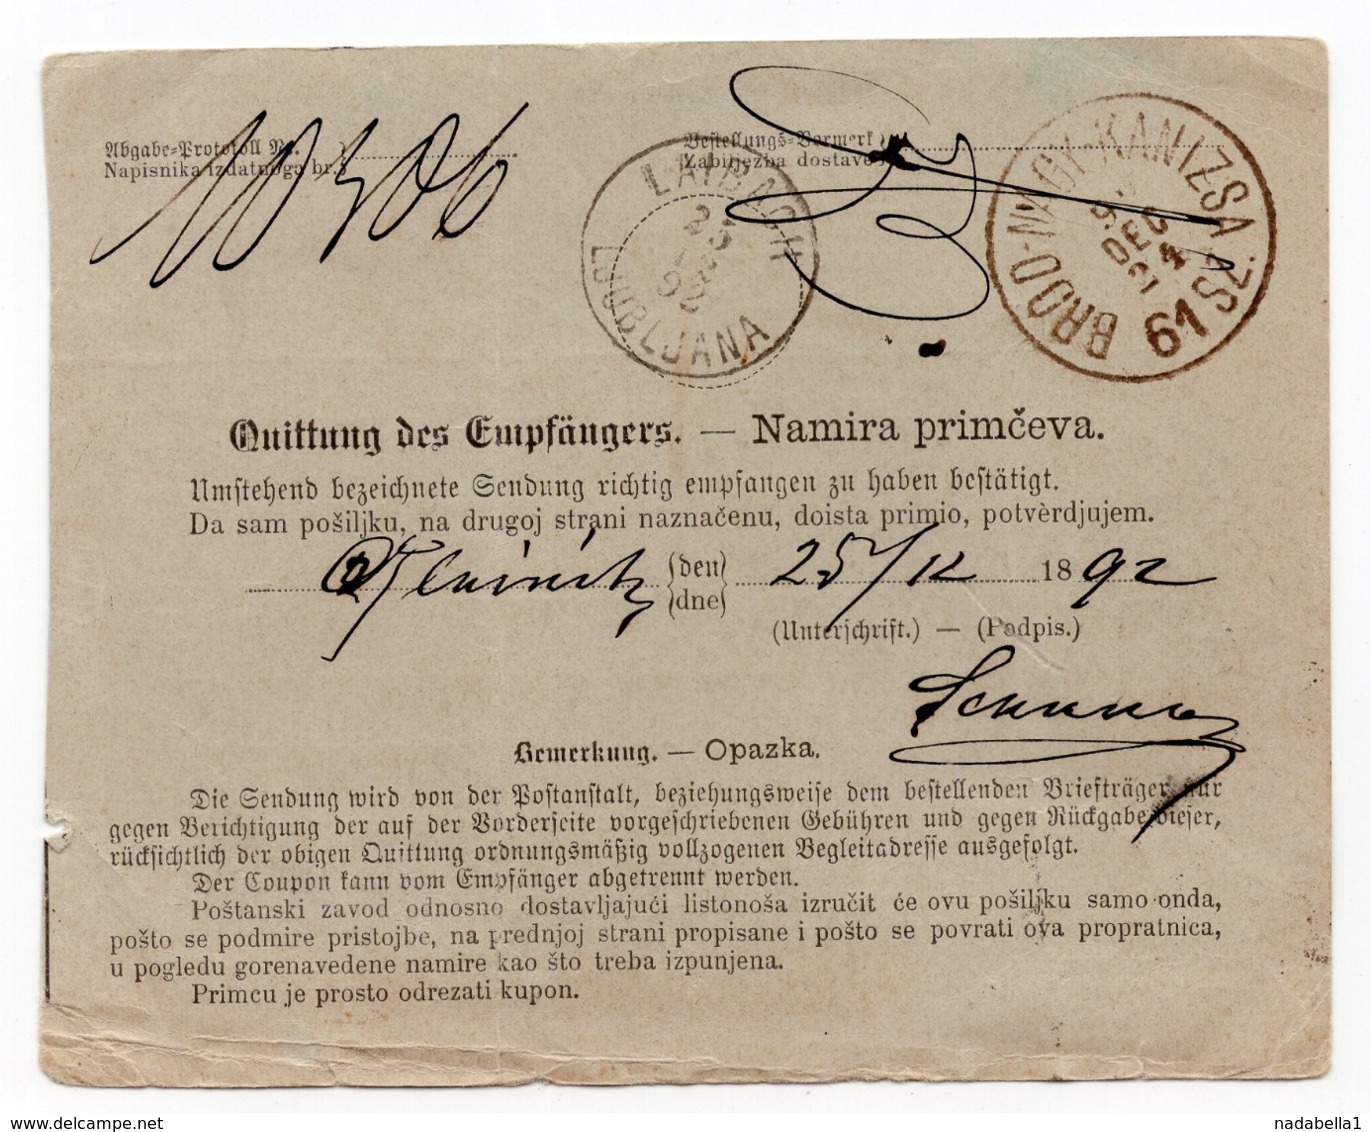 Abgabe=Protokoll Nr.
Napisnika izdatnoga br.
10306
Bestellungs=Vormerk
Zabilježba dostave
LAIBACH
23
92
LJUBLJANA
BRÓD-NAGY-KANIZSA
DEC
61 SZ.
Quittung des Empfängers. — Namira primčeva.
Umstehend bezeichnete Sendung richtig empfangen zu haben bestätigt.
Da sam pošiljku, na drugoj strani naznačenu, doista primio, potvèrdjujem.
den 25/12 1892
dne
(Unterschrift.) — (Podpis.)
Bemerkung. — Opazka.
Die Sendung wird von der Postanstalt, beziehungsweise dem bestellenden Briefträger nur
gegen Berichtigung der auf der Vorderseite vorgeschriebenen Gebühren und gegen Rückgabe dieser,
rücksichtlich der obigen Quittung ordnungsmäßig vollzogenen Begleitadresse ausgefolgt.
Der Coupon kann vom Empfänger abgetrennt werden.
Poštanski zavod odnosno dostavljajući listonoša izručit će ovu pošiljku samo onda,
pošto se podmire pristojbe, na prednjoj strani propisane i pošto se povrati ova propratnica,
u pogledu gorenavedene namire kao što treba izpunjena.
Primcu je prosto odrezati kupon.
www.delcampe.net
nadabella1